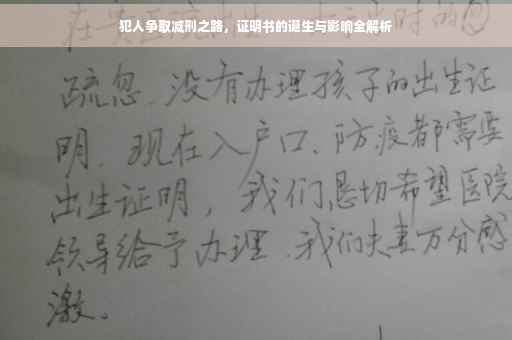 犯人争取减刑之路，证明书的诞生与影响全解析
疏忽、没有办理孩子的出生证
明、现在入户口、防疫都需要
出生证明，我们恳切希望医院
领导给予办理、我们夫妻万分感
激。